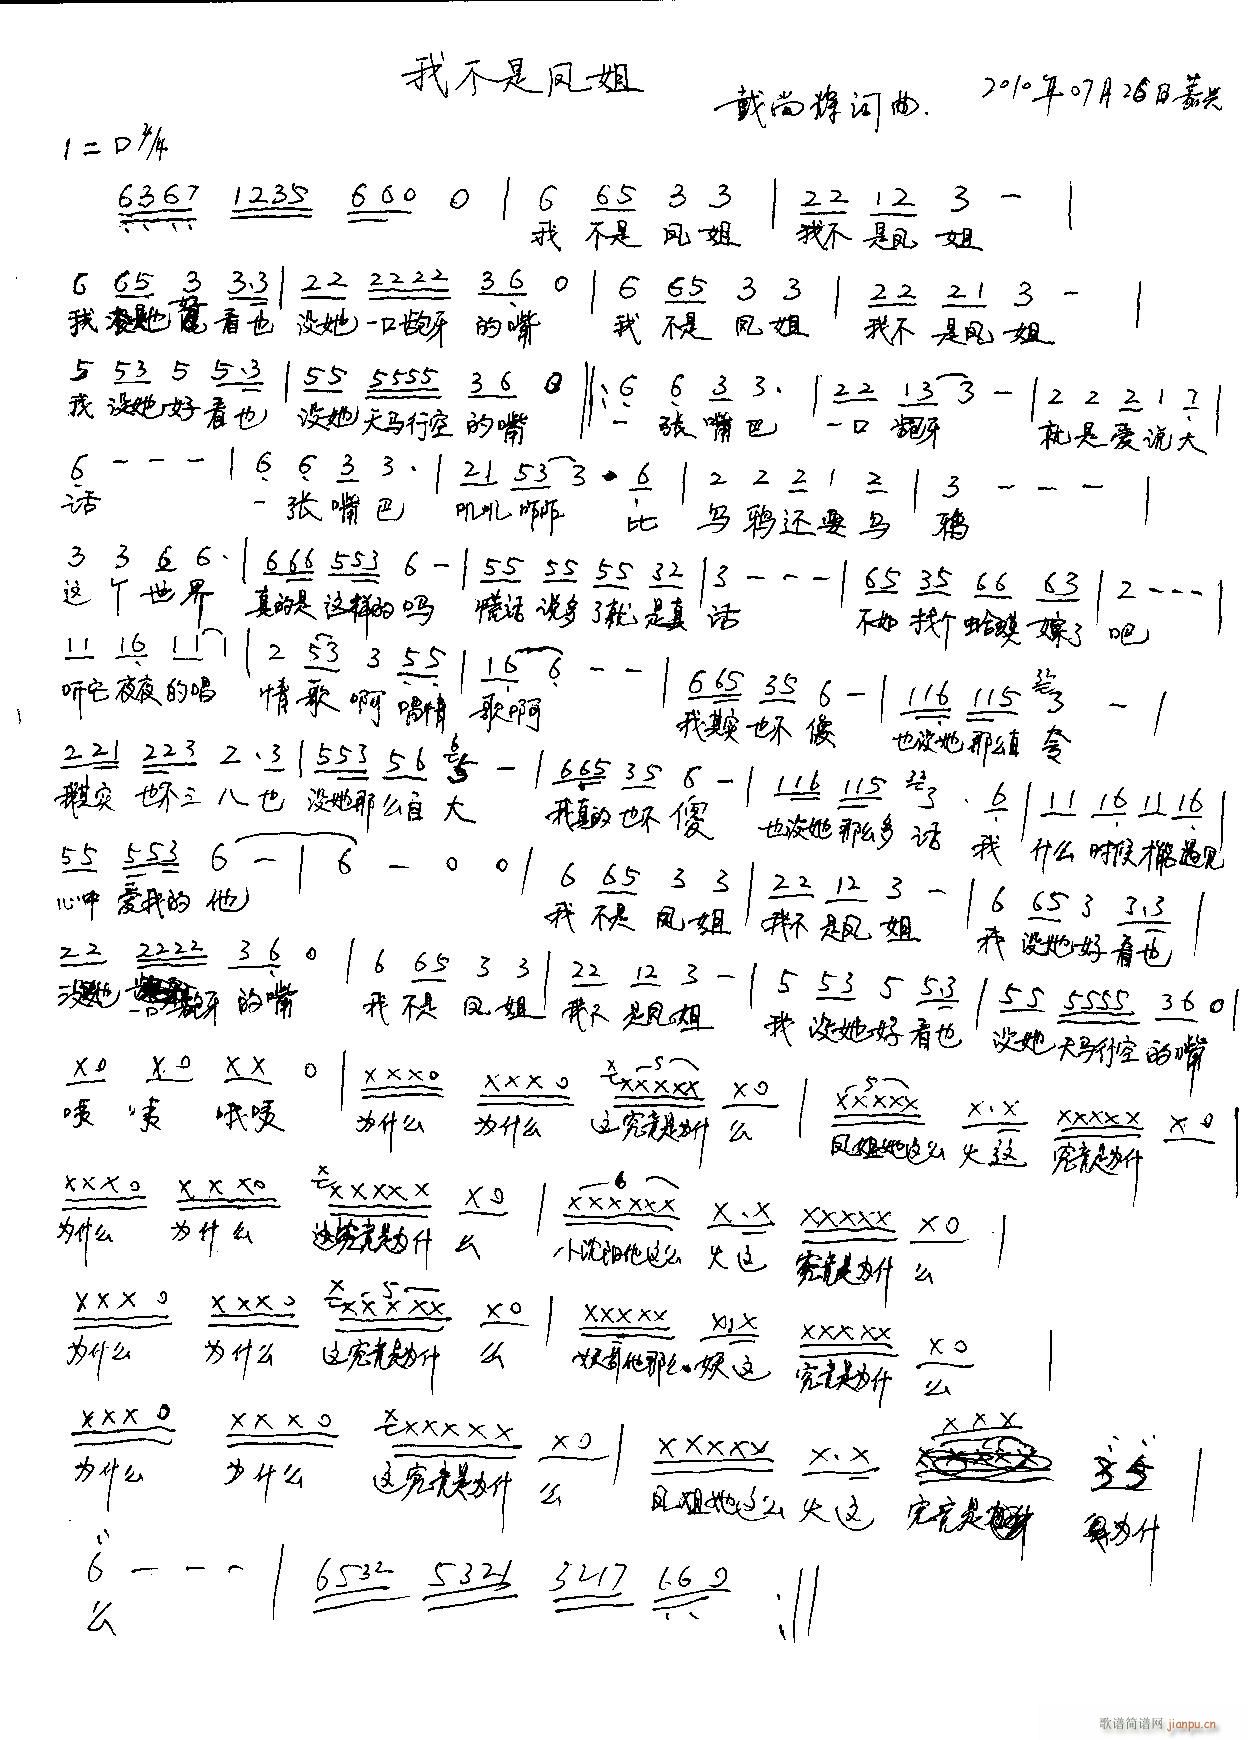 我不是凤姐
戴尚辉词曲. 2010年07月26日嘉兴
1=D 4/4
6367 1235 660 0 | 6 65 3 3 | 22 12 3 - |
我 不是 凤 姐 我不 是凤 姐
6 65 3 3.3 | 22 2222 36 0 | 6 65 3 3 | 22 21 3 - |
我 没她 好 看也 没她 一口龅牙 的嘴 我 不是 凤 姐 我不 是凤 姐
5 53 5 5.3 | 55 5555 36 0 ‖: 6 6 3 3. | 22 13 3 - | 2 2 2 1 7 |
我 没她 好 看也 没她 天马行空 的嘴 一 张 嘴 巴 一口 龅牙 就是爱说大
6 - - - | 6 6 3 3. | 21 53 3. 6 | 2 2 2 1 2 | 3 - - - |
话 一 张 嘴 巴 叽叽 咋咋 比 乌鸦还要乌 鸦
3 3 6 6. | 666 553 6 - | 55 55 55 32 | 3 - - - | 65 35 66 63 | 2 - - - |
这 个 世 界 真的是 这样的 吗 慌话 说多 了就 是真 话 不如 找个 蛤蟆 嫁了 吧
11 16 11 1 | 2 53 3 55 | 16 6 - - | 665 35 6 - | 116 115 3 - |
听它 夜夜 的唱 情 歌 啊 唱情 歌啊 我其实 也不 傻 也没她 那么自 夸
221 223 2.3 | 553 56 5 - | 665 35 6 - | 116 115 3. 6 | 11 16 11 16 |
我其实 也不三 八 也 没她那么自 大 我真的 也不 傻 也没她 那么多 话 我 什么 时候 才能 遇见
55 553 6 - | 6 - 0 0 | 6 65 3 3 | 22 12 3 - | 6 65 3 3.3 |
心中 爱我的 他 我 不是 凤 姐 我不 是凤 姐 我 没她 好 看也
22 2222 36 0 | 6 65 3 3 | 22 12 3 - | 5 53 5 5.3 | 55 5555 36 0 |
没她 一口龅牙 的嘴 我 不是 凤 姐 我不 是凤 姐 我 没她 好 看也 没她 天马行空 的嘴
x0 x0 xx 0 | xxx0 xxx0 xxxxxx x0 | xxxxx x.x xxxxx x0 |
啧 啧 哦啧 为什么 为什么 这究竟是为什 么 凤姐她这么 火 这 究竟是为什
xxx0 xxx0 xxxxxx x0 | xxxxxx x.x xxxxx x0 |
为什么 为什么 这究竟是为什 么 小沈阳他这么 火 这 究竟是为什 么
xxx0 xxx0 xxxxxx x0 | xxxxx x.x xxxxx x0 |
为什么 为什么 这究竟是为什 么 他那么 这 究竟是为什 么
xxx0 xxx0 xxxxxx x0 | xxxxx x.x xxx 3 5 |
为什么 为什么 这究竟是为什 么 凤姐她这么 火 这 究竟是 为什
6 - - - | 6532 5321 3217 1.60 :‖
么
歌谱简谱网 jianpu.cn